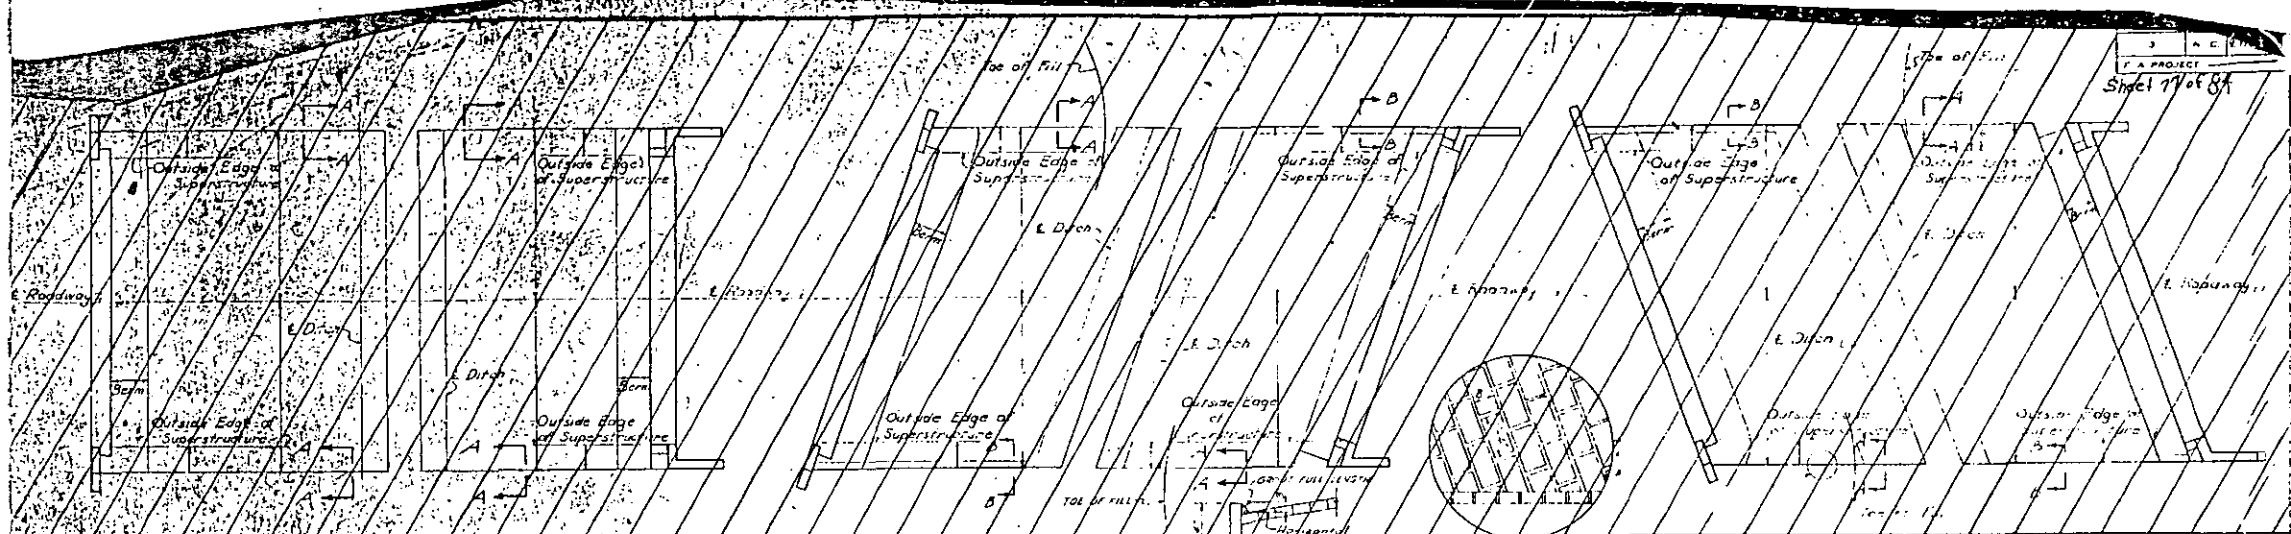 3 N. C.
F A PROJECT
Sheet 77 of 84
Toe of Fill
Toe of Fill
A
A
A
B
B
A
Outside Edge of
Superstructure
Outside Edge
of Superstructure
Outside Edge of
Superstructure
Outside Edge of
Superstructure
Outside Edge
of Superstructure
Outside Edge of
Superstructure
A
A
A
B
B
A
Berm
Berm
Berm
Berm
℄ Ditch
℄ Ditch
℄ Roadway
℄ Roadway
℄ Roadway
℄ Roadway
℄ Ditch
℄ Ditch
℄ Ditch
℄ Ditch
Berm
Berm
Outside Edge of
Superstructure
Outside Edge
of Superstructure
Outside Edge of
Superstructure
Outside Edge
of
Superstructure
Outside Edge
of Superstructure
Outside Edge of
Superstructure
A
A
B
A
A
A
B
A
TOE OF FILL
FULL LENGTH
Horizontal